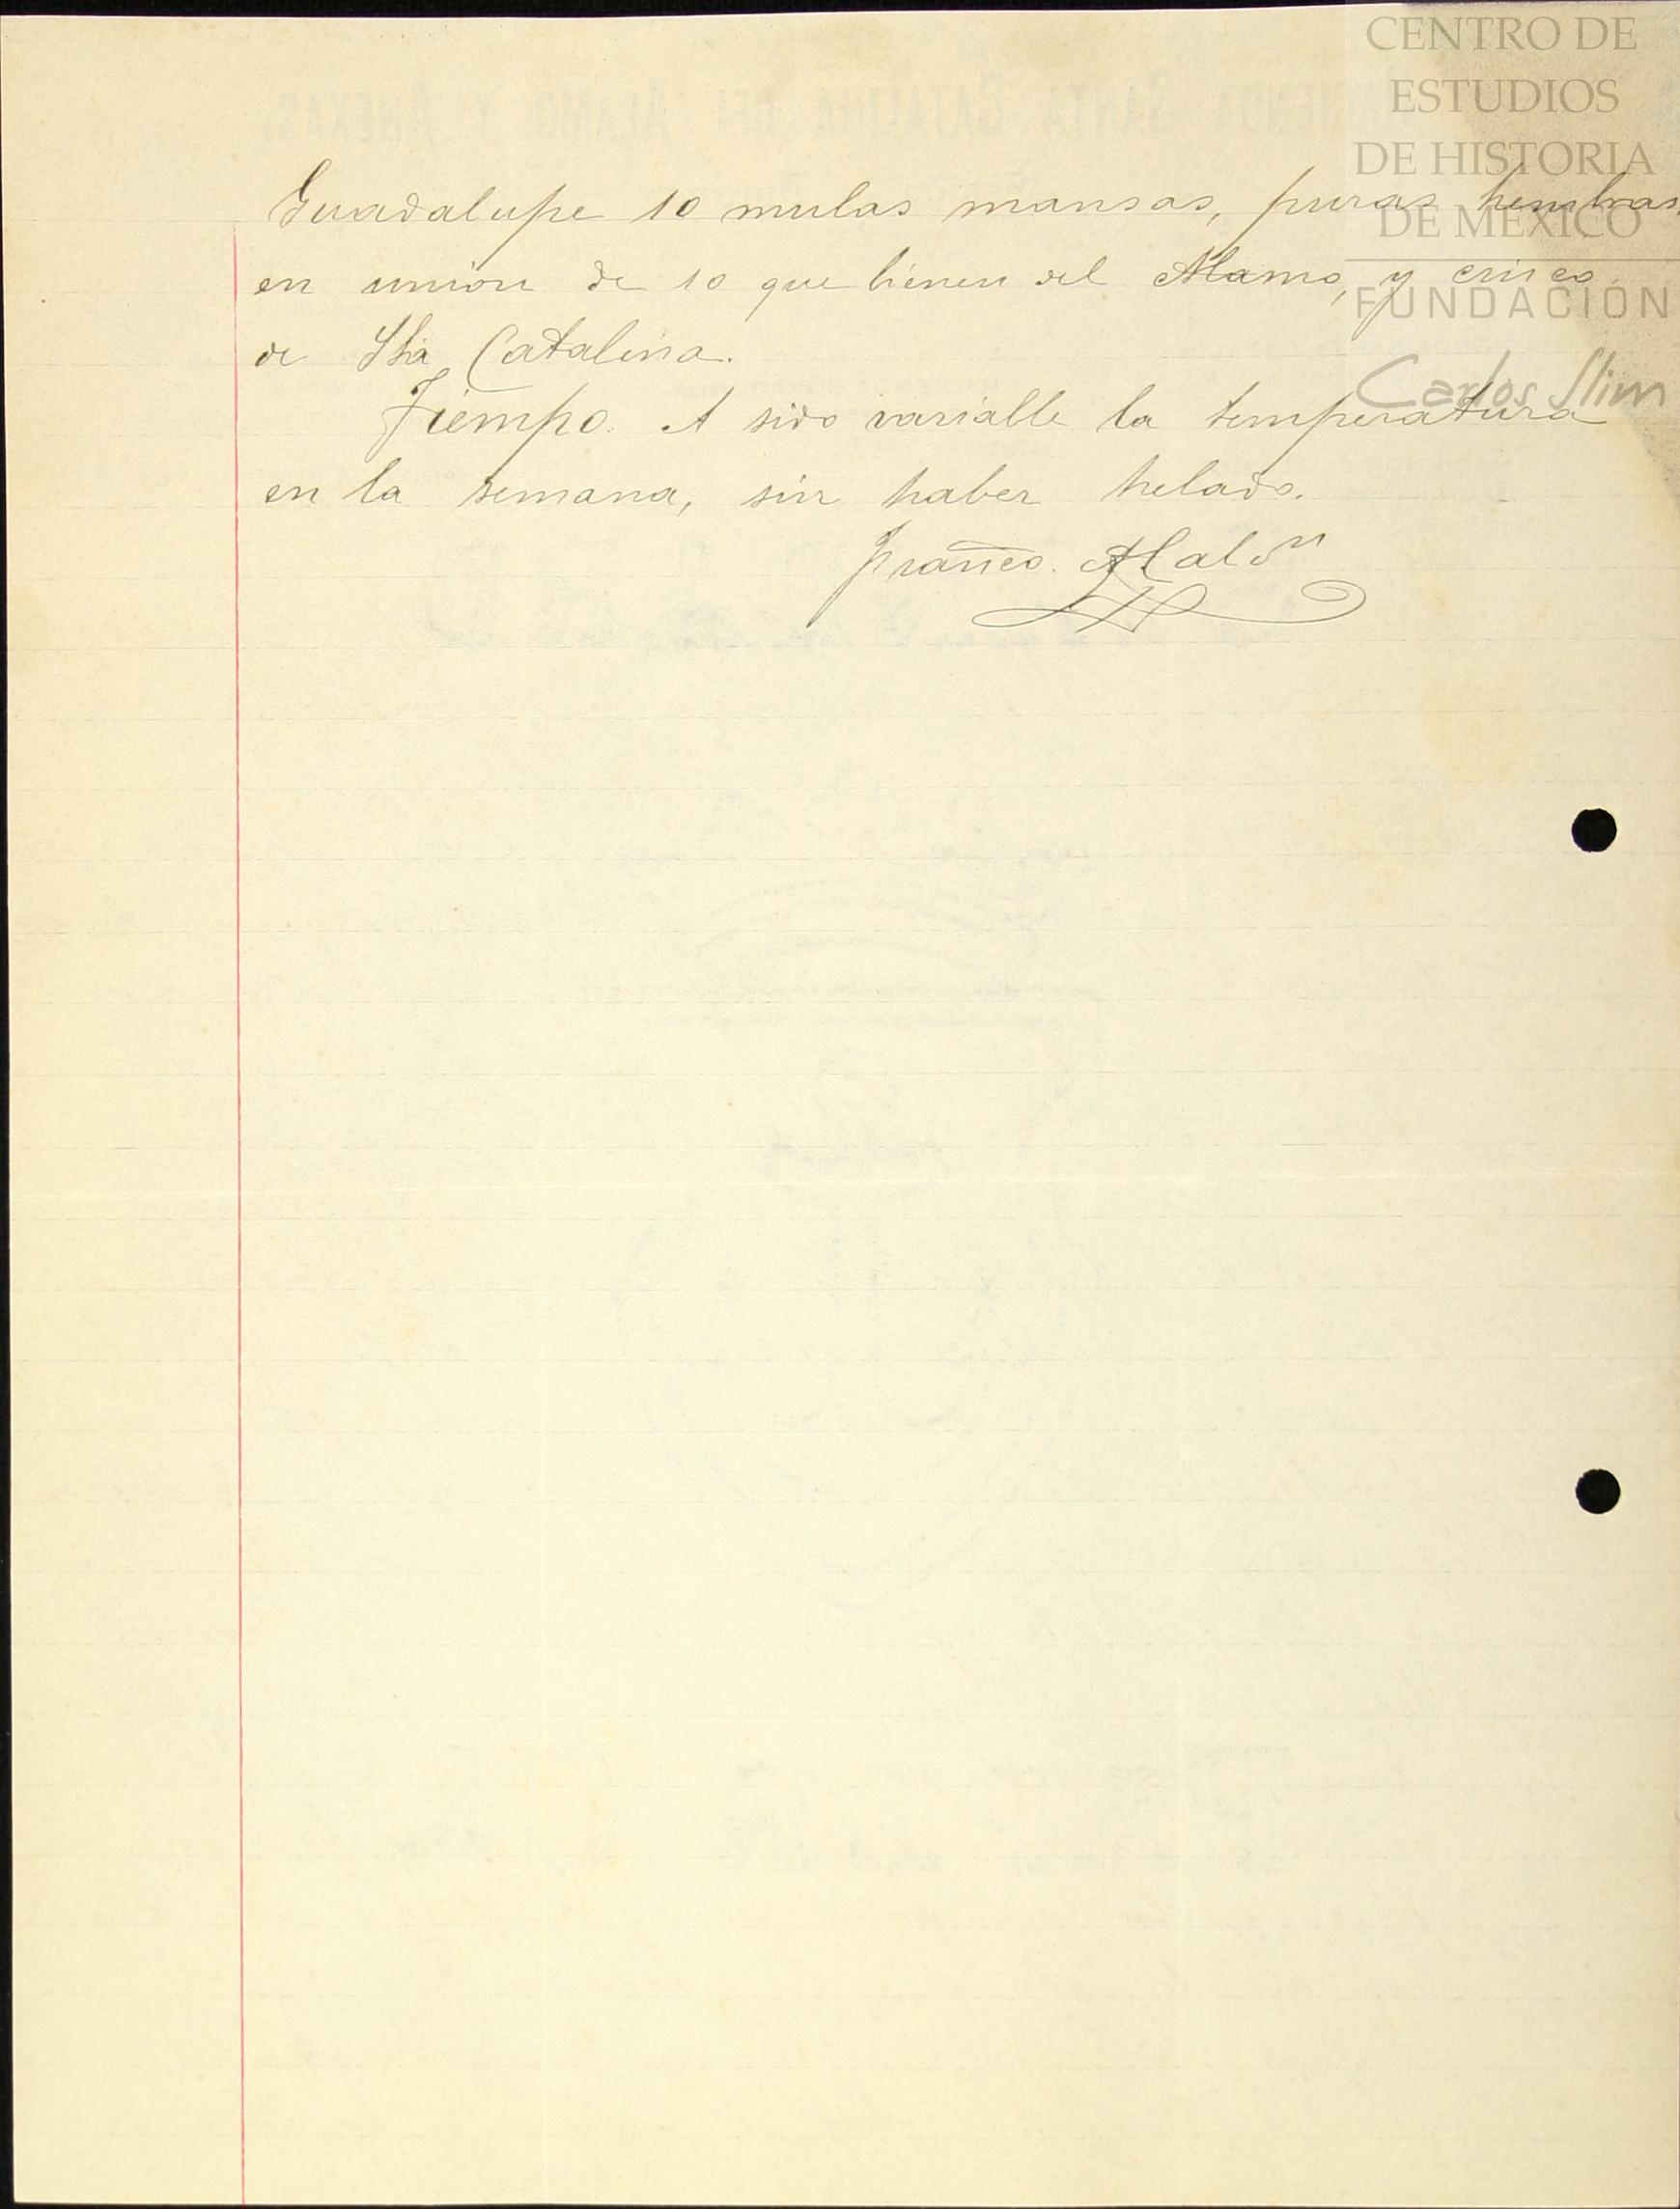 CENTRO DE
ESTUDIOS
DE HISTORIA
DE MÉXICO
FUNDACIÓN
Carlos Slim
Guadalupe 10 mulas mansas, puras hembras
en union de 10 que bienen del Alamo, y cinco
de Sta Catalina.
Tiempo. A sido variable la temperatura
en la semana, sin haber helado.
Franco.